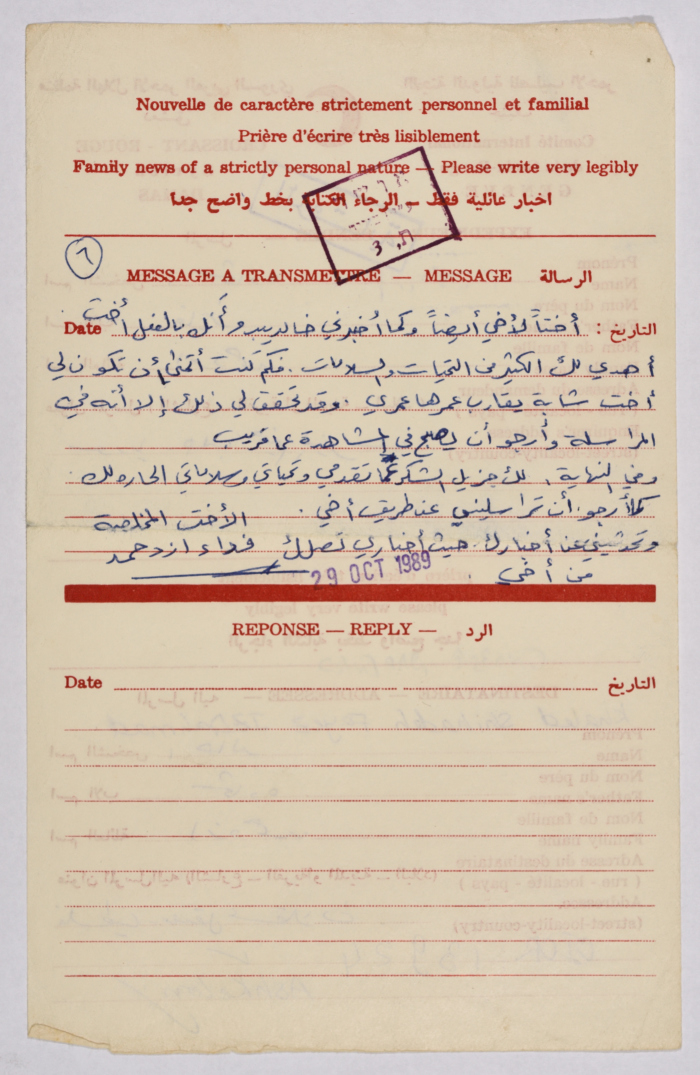 Nouvelle de caractère strictement personnel et familial
Prière d'écrire très lisiblement
Family news of a strictly personal nature — Please write very legibly
اخبار عائلية فقط — الرجاء الكتابة بخط واضح جدا
٦
MESSAGE A TRANSMETTRE — MESSAGE الرسالة
Date أختاً لأخي أيضاً وكما أخبرني خالد بـ وأنك بالفعل أخت التاريخ :
أهدي لك الكثير من التحيات والسلامات . فكم كنت أتمنى أن تكون لي
أخت شابة يقارب عمرها عمري . وقد تحقق لي ذلك إلا أنه في
المراسلة وأرجو أن يصبح في المشاهدة عما قريب
وفي النهاية . لك جزيل الشكر تقدمي وتحياتي وسلاماتي الحارة لك .
كما أرجو أن تراسليني عن طريق أخي . الأخت المخلصة
وتحدثيني عن أخبارك . حيث أخباري تصلك فداء
من أخي
29 OCT 1989
REPONSE — REPLY — الرد
Date التاريخ